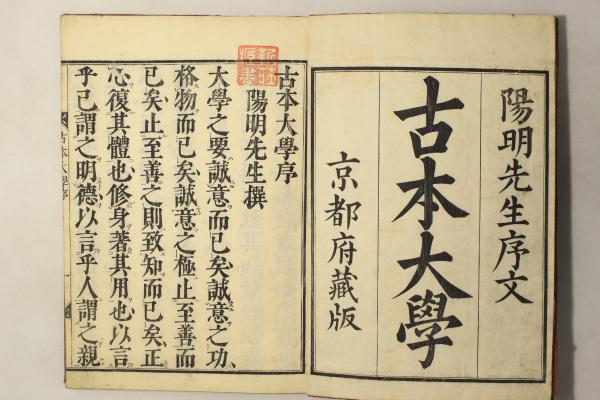 陽明先生序文
古本大學
京都府藏版
古本大學序
陽明先生撰
大學之要誠意而已矣誠意之功
格物而已矣誠意之極止至善而
已矣止至善之則致知而已矣正
心復其體也修身著其用也以言
乎己謂之明德以言乎人謂之親
古本大學序